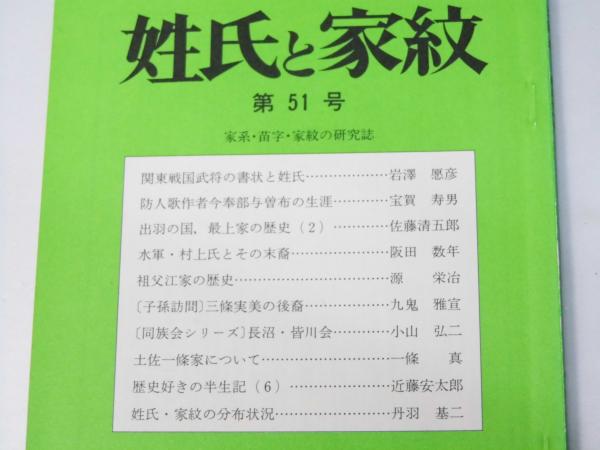 姓氏と家紋
第 51 号
家系・苗字・家紋の研究誌
関東戦国武将の書状と姓氏………………岩澤 愿彦
防人歌作者今奉部与曽布の生涯…………宝賀 寿男
出羽の国，最上家の歴史（2）…………佐藤清五郎
水軍・村上氏とその末裔…………………阪田 数年
祖父江家の歴史……………………………源 栄治
〔子孫訪問〕三條実美の後裔……………九鬼 雅宣
〔同族会シリーズ〕長沼・皆川会………小山 弘二
土佐一條家について………………………一條 真
歴史好きの半生記（6）…………………近藤安太郎
姓氏・家紋の分布状況……………………丹羽 基二